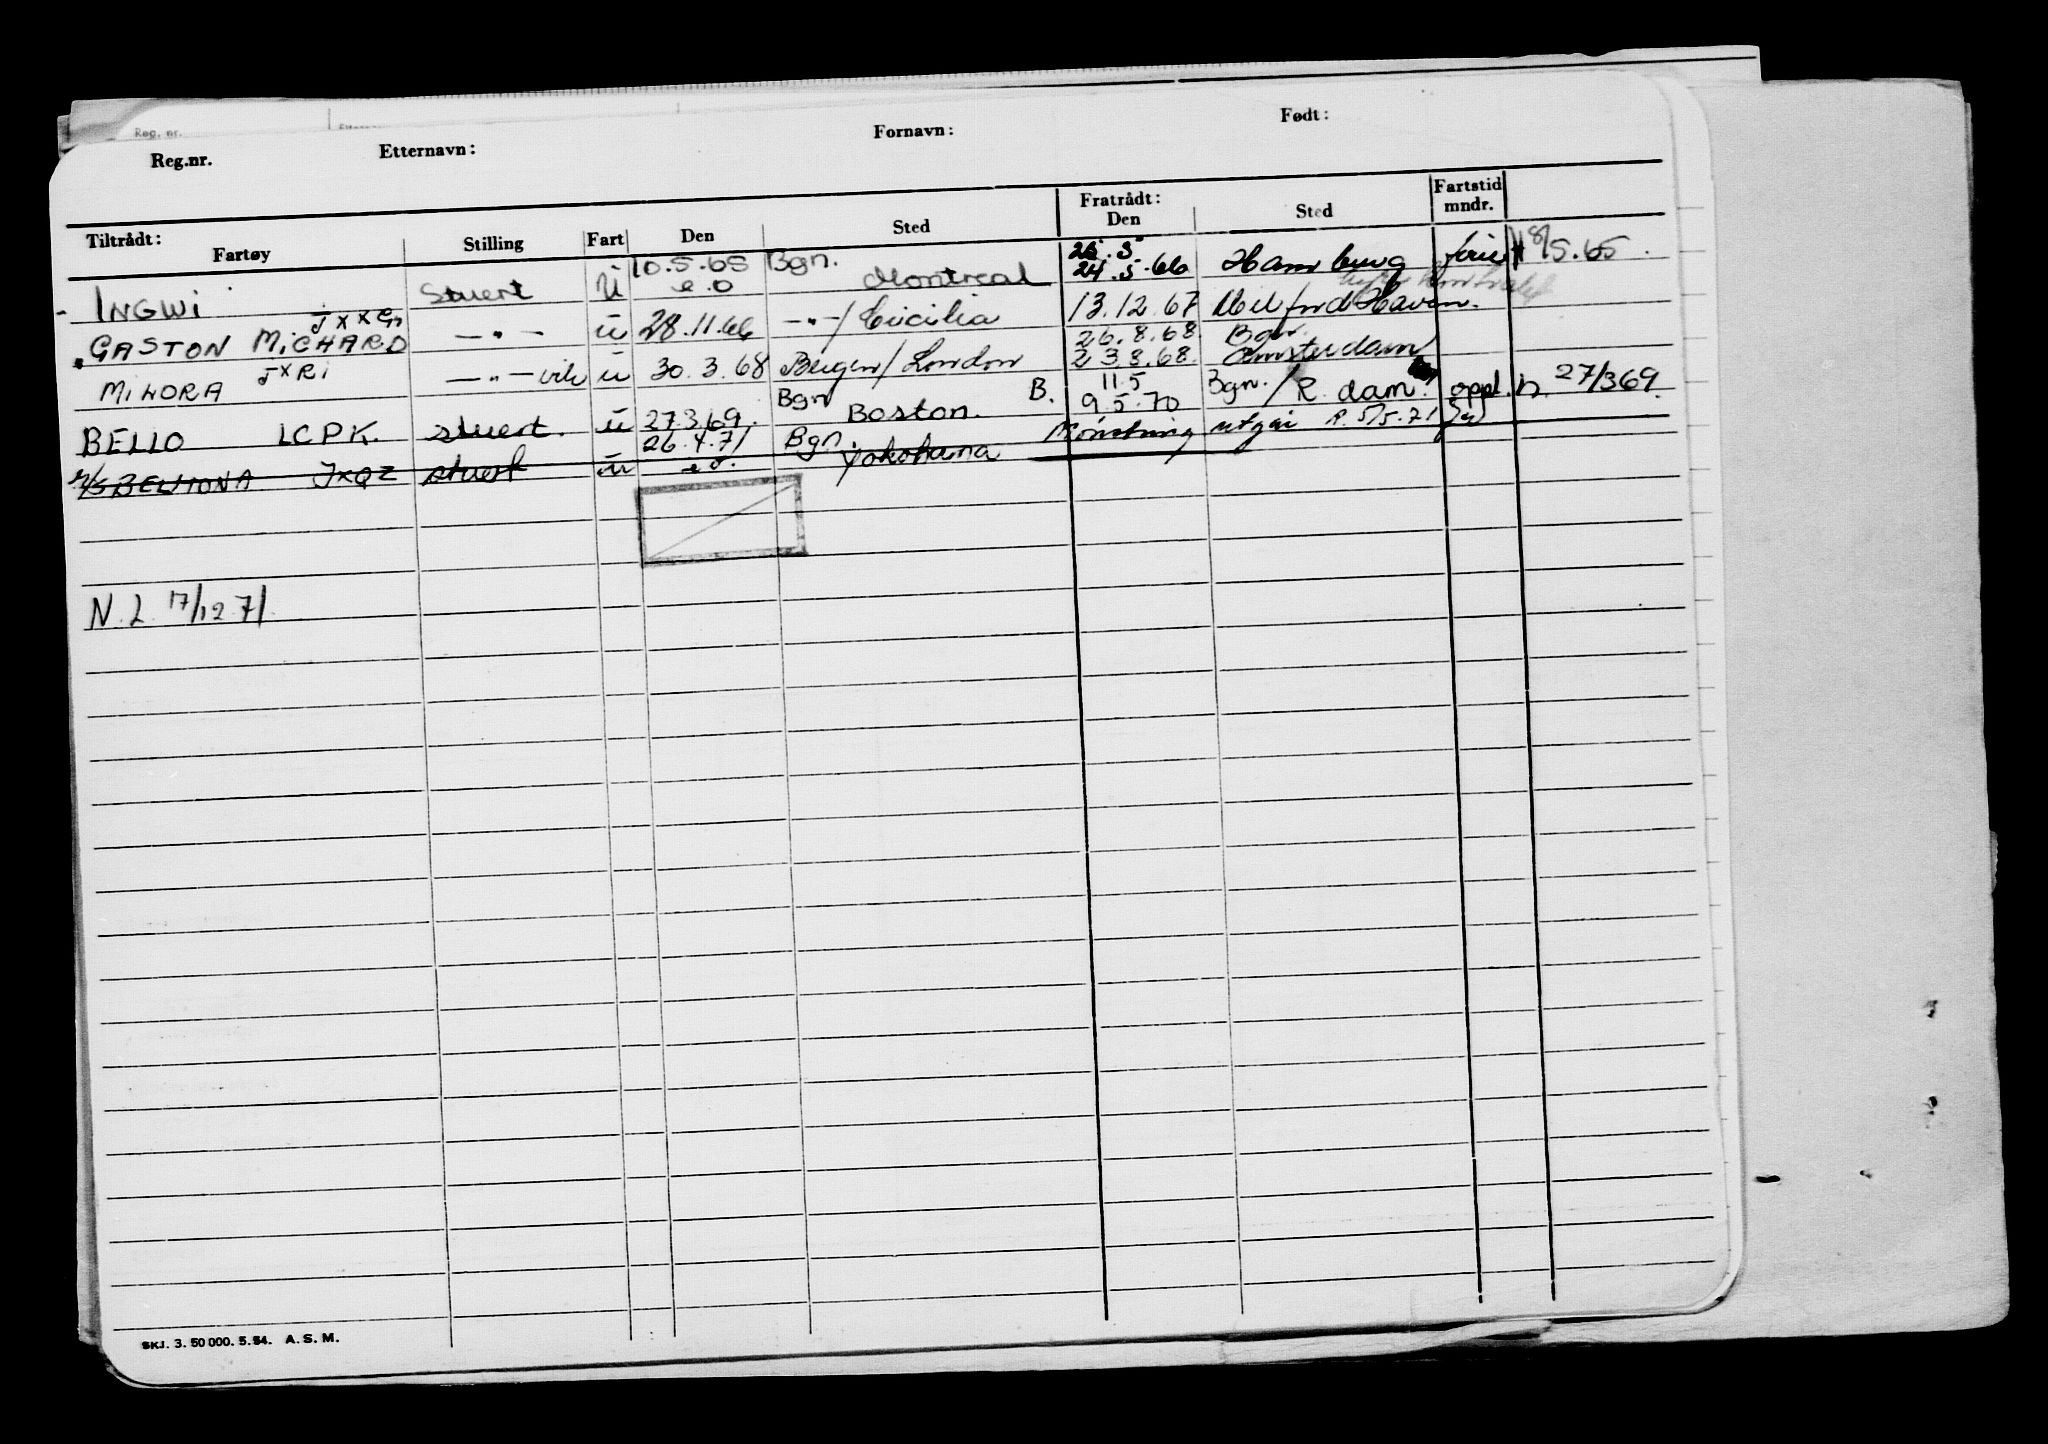 Reg. nr.
Reg.nr. Etternavn: Fornavn: Født:
Tiltrådt: Fratrådt: Fartstid
Fartøy Stilling Fart Den Sted Den Sted mndr.
10.5.65 Bgn. 26.5
- INGWI Stuert U e.o Montreal 24.5.66 Hamburg ferie 8/5.65.
JXXG
GASTON MICHARD — " — u 28.11.66 — " — / Cicilia 13.12.67 Milford Haven.
26.8.68 Bgn.
MILORA JXRI — " — vik u 30.3.68 Bergen / London 23.8.68. Amsterdam
Bgn B. 11.5 Bgn. /
BELLO LCPK. stuert. u 27.3.69. Boston. 9.5.70 R.dam. oppl. n. 27/3 69.
26.4.71 Bgn. Mønstring utgår R. 5/5.71
M/S BELMONA JXQZ stuert u e.o. Yokohama
N.L. 17/12 71.
SKJ. 3. 50 000. 5. 54. A. S. M.